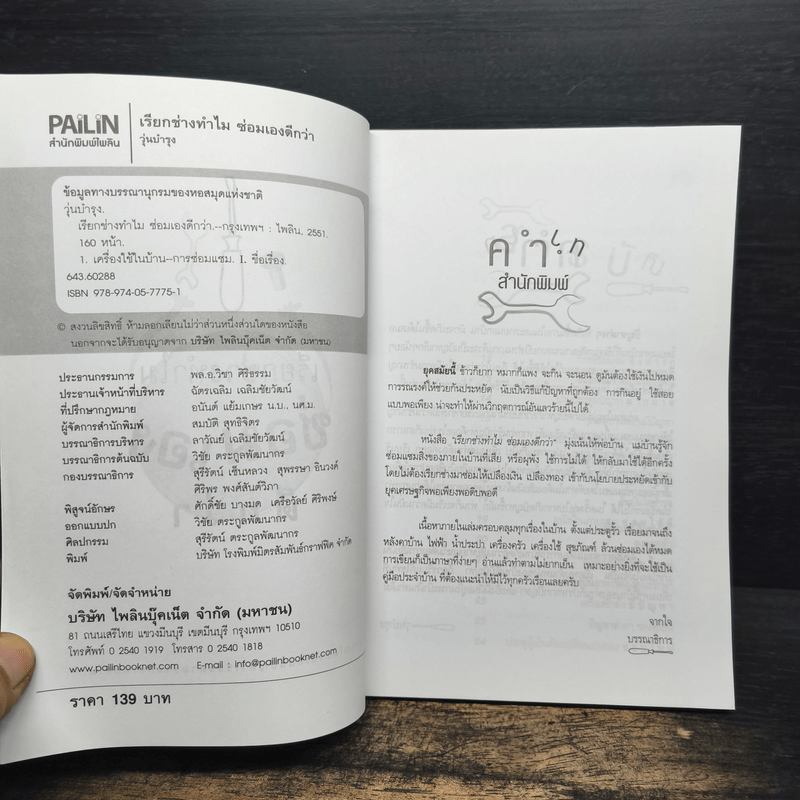 PAiLiN
สำนักพิมพ์ไพลิน
เรียกช่างทำไม ซ่อมเองดีกว่า
วุ่นบำรุง
ข้อมูลทางบรรณานุกรมของหอสมุดแห่งชาติ
วุ่นบำรุง.
เรียกช่างทำไม ซ่อมเองดีกว่า.--กรุงเทพฯ : ไพลิน, 2551.
160 หน้า.
1. เครื่องใช้ในบ้าน--การซ่อมแซม. I. ชื่อเรื่อง.
643.60288
ISBN 978-974-05-7775-1
© สงวนลิขสิทธิ์ ห้ามลอกเลียนไม่ว่าส่วนหนึ่งส่วนใดของหนังสือ
นอกจากจะได้รับอนุญาตจาก บริษัท ไพลินบุ๊คเน็ต จำกัด (มหาชน)
ประธานกรรมการ พล.อ.วิชา ศิริธรรม
ประธานเจ้าหน้าที่บริหาร ฉัตรเฉลิม เฉลิมชัยวัฒน์
ที่ปรึกษากฎหมาย อนันต์ แย้มเกษร น.บ., นศ.ม.
ผู้จัดการสำนักพิมพ์ สมบัติ สุทธิจิตร
บรรณาธิการบริหาร ลาวัณย์ เฉลิมชัยวัฒน์
บรรณาธิการต้นฉบับ วิชัย ตระกูลพัฒนากร
กองบรรณาธิการ สุรีรัตน์ เซ็นหลวง สุพรรษา อินวงค์
ศิริพร พงศ์สันต์วิภา
พิสูจน์อักษร ศักดิ์ชัย บางมด เครือวัลย์ ศิริพงษ์
ออกแบบปก วิชัย ตระกูลพัฒนากร
ศิลปกรรม สุรีรัตน์ ตระกูลพัฒนากร
พิมพ์ บริษัท โรงพิมพ์มิตรสัมพันธ์กราฟฟิค จำกัด
จัดพิมพ์/จัดจำหน่าย
บริษัท ไพลินบุ๊คเน็ต จำกัด (มหาชน)
81 ถนนเสรีไทย แขวงมีนบุรี เขตมีนบุรี กรุงเทพฯ 10510
โทรศัพท์ 0 2540 1919 โทรสาร 0 2540 1818
www.pailinbooknet.com E-mail : info@pailinbooknet.com
ราคา 139 บาท
สำนักพิมพ์
ยุคสมัยนี้ ข้าวก็ยาก หมากก็แพง จะกิน จะนอน ดูมันต้องใช้เงินไปหมด
การรณรงค์ให้ช่วยกันประหยัด นับเป็นวิธีแก้ปัญหาที่ถูกต้อง การกินอยู่ ใช้สอย
แบบพอเพียง น่าจะทำให้ผ่านวิกฤตการณ์อันเลวร้ายนี้ไปได้
หนังสือ "เรียกช่างทำไม ซ่อมเองดีกว่า" มุ่งเน้นให้พ่อบ้าน แม่บ้านรู้จัก
ซ่อมแซมสิ่งของภายในบ้านที่เสีย หรือผุพัง ใช้การไม่ได้ ให้กลับมาใช้ได้อีกครั้ง
โดยไม่ต้องเรียกช่างมาซ่อมให้เปลืองเงิน เปลืองทอง เข้ากับนโยบายประหยัดเข้ากับ
ยุคเศรษฐกิจพอเพียงพอดิบพอดี
เนื้อหาภายในเล่มครอบคลุมทุกเรื่องในบ้าน ตั้งแต่ประตูรั้ว เรื่อยมาจนถึง
หลังคาบ้าน ไฟฟ้า น้ำประปา เครื่องครัว เครื่องใช้ สุขภัณฑ์ ล้วนซ่อมเองได้หมด
การเขียนก็เป็นภาษาที่ง่ายๆ อ่านแล้วทำตามไม่ยากเย็น เหมาะอย่างยิ่งที่จะใช้เป็น
คู่มือประจำบ้าน ที่ต้องแนะนำให้มีไว้ทุกครัวเรือนเลยครับ
จากใจ
บรรณาธิการ